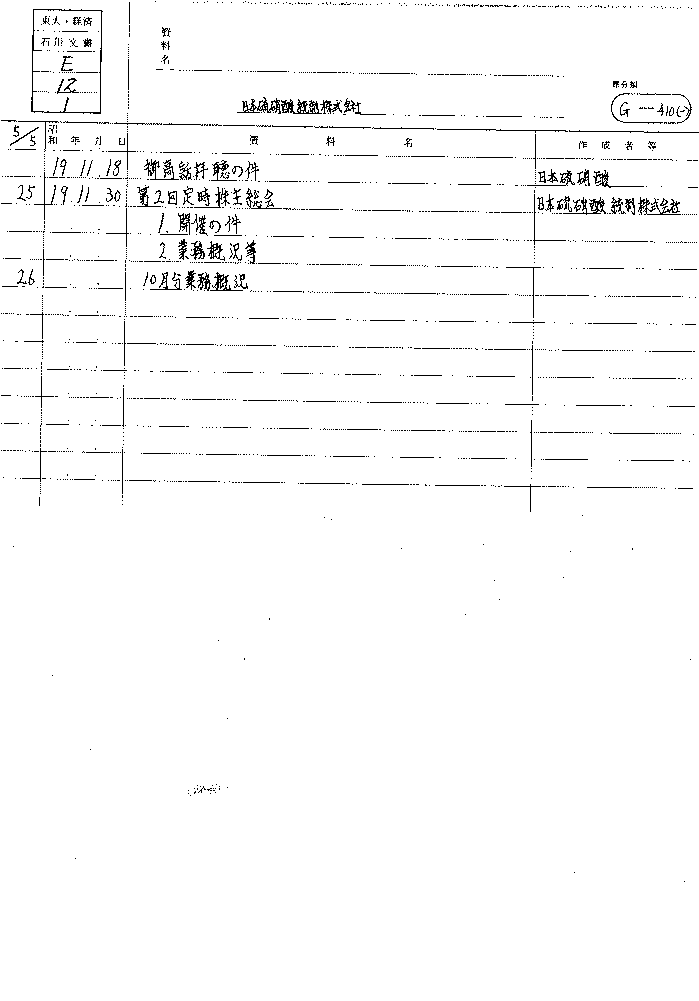 東大・経済
石川文書
E
12
1
資料名
日本硫硝酸統制株式会社
原分類
G-410(-)
5/5 昭和 年 月 日 資料名 作成者等
19 11 18 御高話拝聴の件 日本硫硝酸
25 19 11 30 第2回定時株主総会 日本硫硝酸統制株式会社
1. 開催の件
2. 業務概況等
26 10月分業務概況